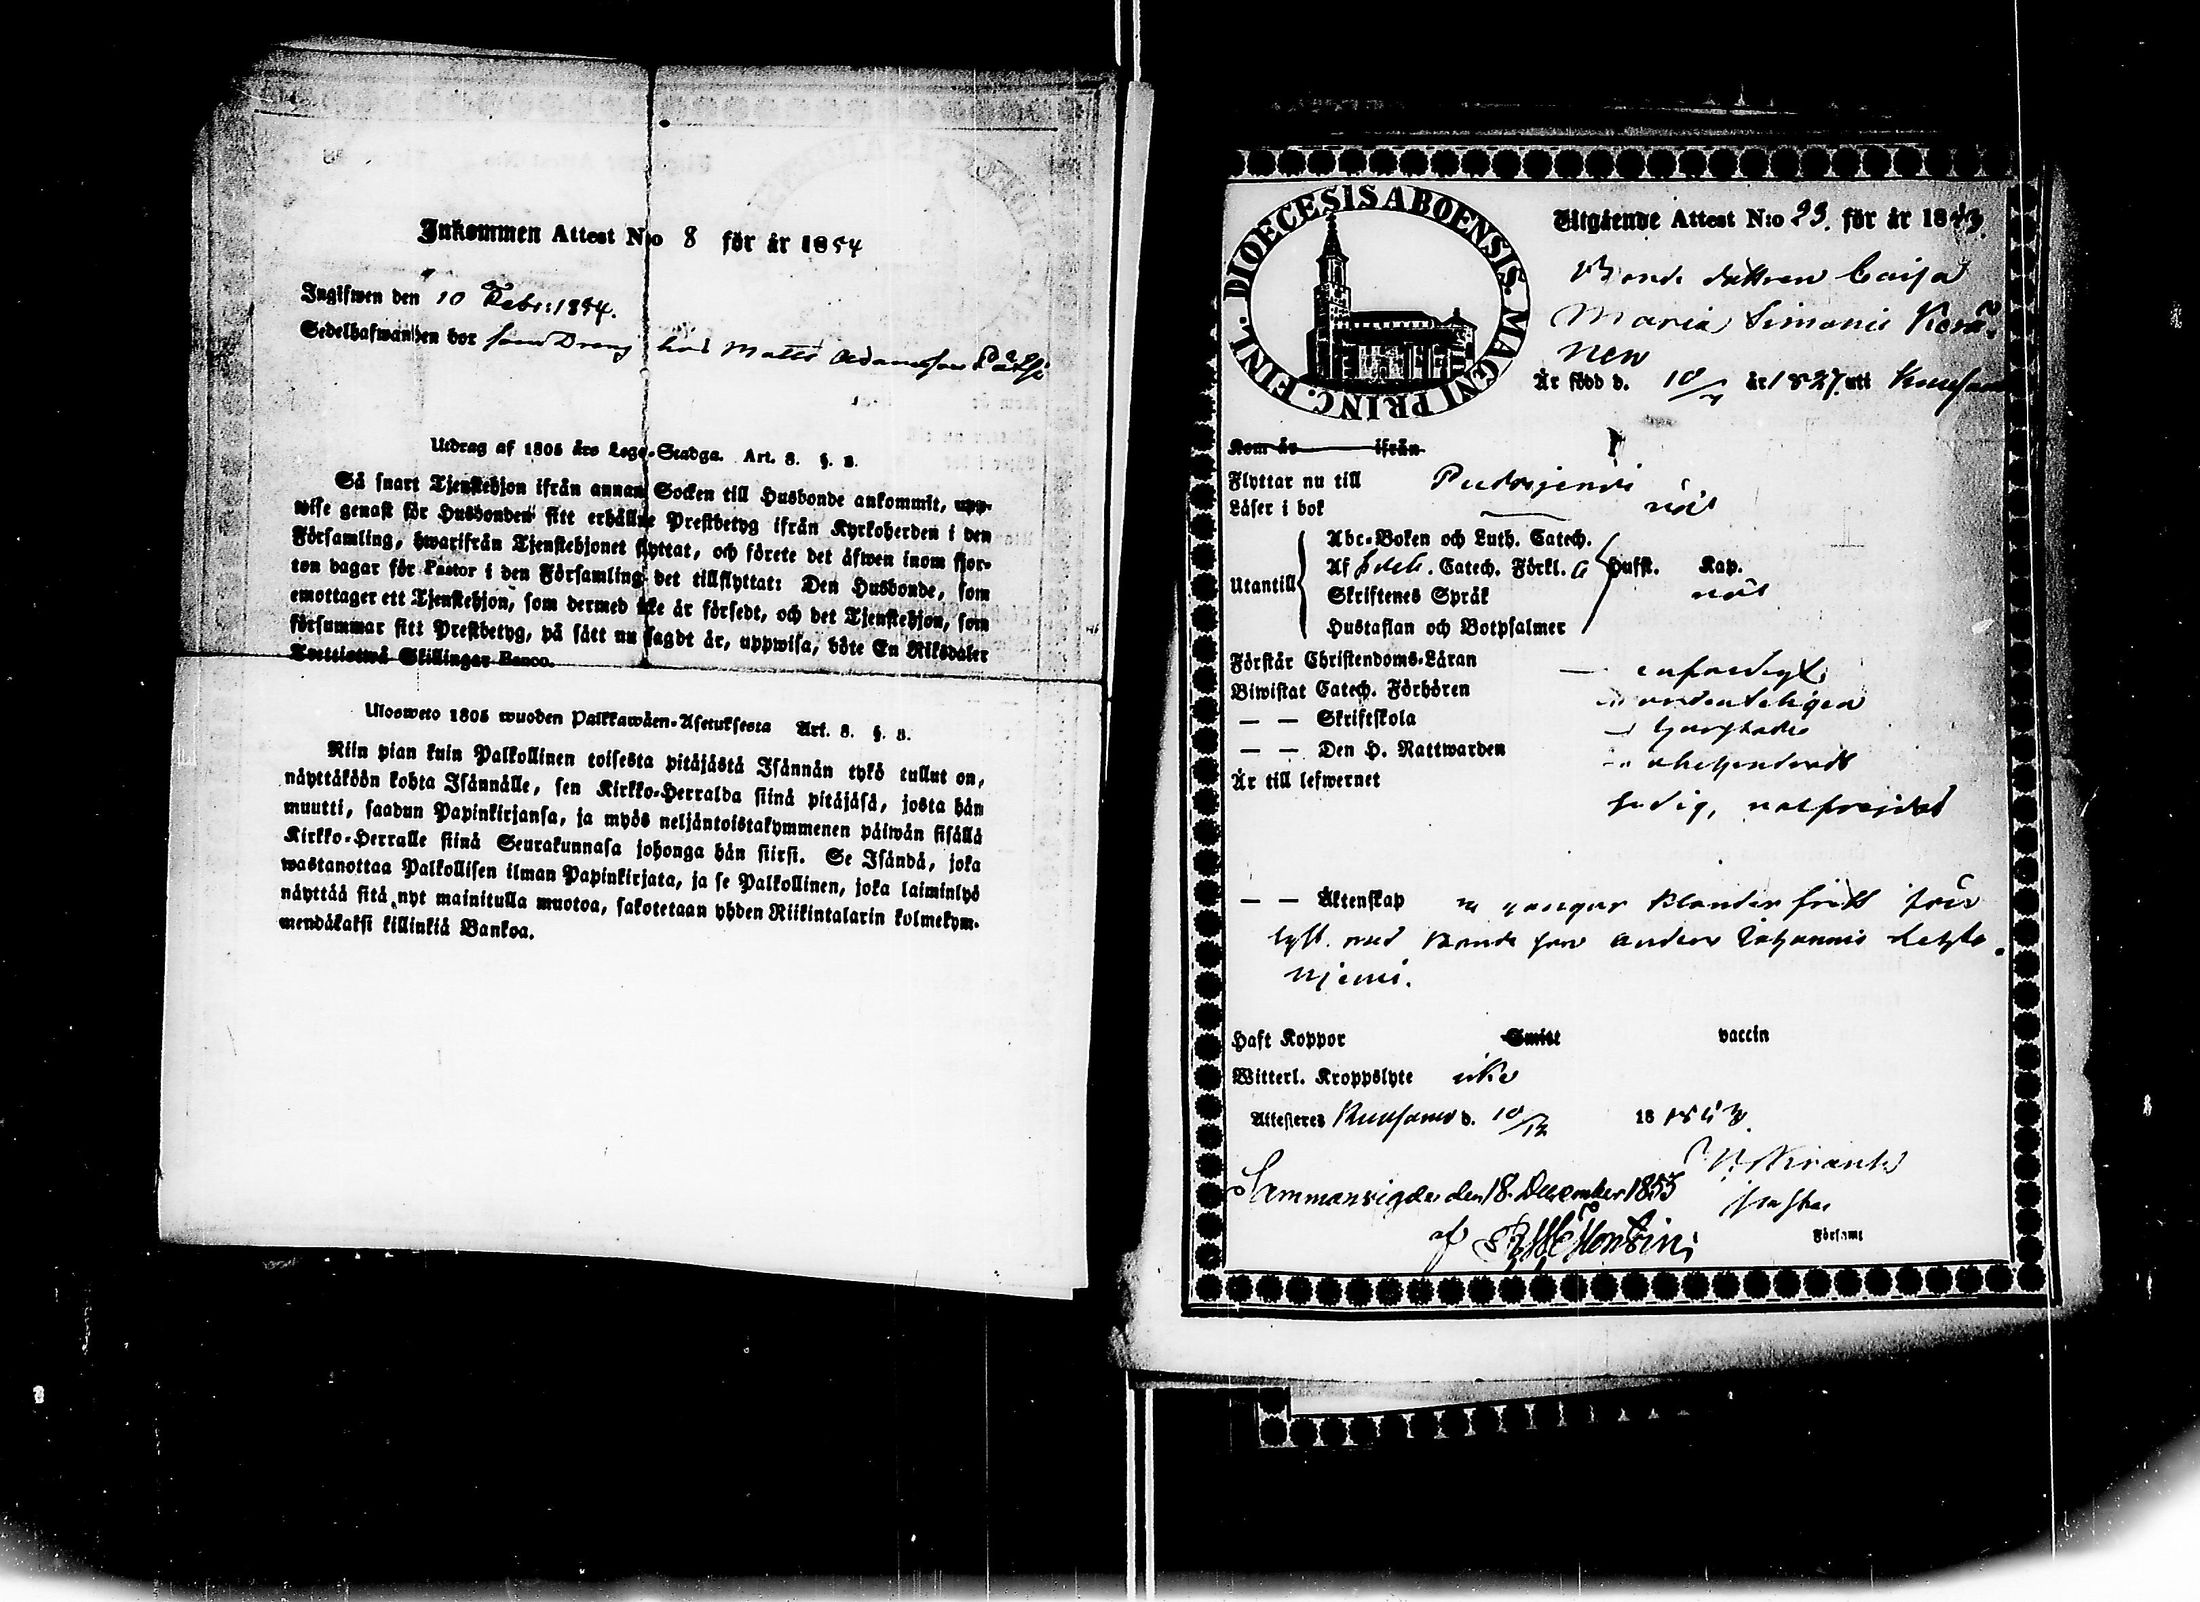 Inkommen Attest N:o 8 för år 1854
Ingifwen den 10 Febr: 1854.
Sedelhafwanden bor som Dreng hos Matts Adamsson Pätsi
Utdrag af 1805 års Lego-Stadga. Art. 8. §. 8.
Så snart Tjenstehjon ifrån annan Socken till Husbonde ankommit, upp-
wise genast för Husbonden sitt erhållne Prestbetyg ifrån Kyrkoherden i den
Församling, hwarifrån Tjenstehjonet flyttat, och förete det äfwen inom fjor-
ton dagar för Pastor i den Församling det tillflyttat: Den Husbonde, som
emottager ett Tjenstehjon, som dermed icke är försedt, och det Tjenstehjon, som
försummar sitt Prestbetyg, på sätt nu sagdt är, uppwisa, böte En Riksdaler
Trettiotwå Skillingar Banco.
Ulosweto 1805 wuoden Palkkawäen-Asetuksesta Art. 8. §. 8.
Niin pian kuin Palkollinen toisesta pitäjästä Isännän tykö tullut on,
näyttäköön kohta Isännälle, sen Kirkko-Herralda siinä pitäjäsä, josta hän
muutti, saadun Papinkirjansa, ja myös neljäntoistakymmenen päiwän sisällä
Kirkko-Herralle siinä Seurakunnasa johonga hän siirsi. Se Isändä, joka
wastanottaa Palkollisen ilman Papinkirjata, ja se Palkollinen, joka laiminlyö
näyttää sitä nyt mainitulla muotoa, sakotetaan yhden Riikintalarin kolmekym-
mendäkaksi killinkiä Bankoa.
DIOECESIS ABOENSIS. MAGNI PRINC. FINL.
Utgående Attest N:o 93. för år 1853.
Bonde dottren Caisa
Maria Simonis Kerä-
nen
Är född d. 10/ år 1827. uti Kuusamo
Kom år ifrån
Flyttar nu till Pudasjervi
Läser i bok nöl
Utantill
Abc-Boken och Luth. Catech.
Af Catech. Förkl. Hufst. Kap.
Skriftenes Språk nöl
Hustaflan och Botpsalmer
Förstår Christendoms-Läran enfaldigt
Biwistat Catech. Förhören ordenteligen
— — Skriftskola
— — Den H. Nattwarden
År till lefwernet
ledig, wälfrejdad
— — Äktenskap 3 gångor klander fritt för
lyst med Bonde son Anders Johannis Lehto-
njemi.
Haft Koppor Smitt vaccin
Witterl. Kroppslyte icke
Attesteres Kuusamo d. 10/12 18 1853.
Sammanvigde den 18. December 1853
af
Församl